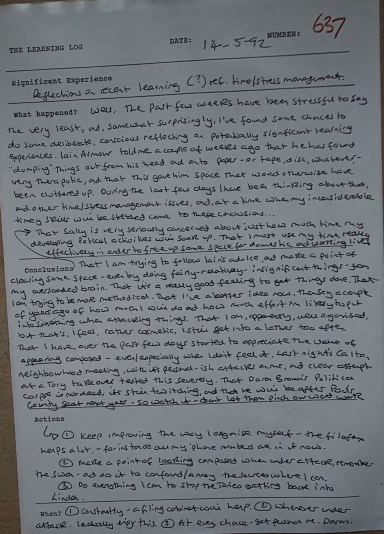 637
THE LEARNING LOG DATE: 14-5-92 NUMBER:
Significant Experience
Reflections on recent learning (?) ref. time/stress management.
What happened? Well, The past few weeks have been stressful to say
the very least, and, somewhat surprisingly, I've found some chances to
do some deliberate, conscious reflecting on potentially significant learning
experiences. Iain Armour told me a couple of weeks ago that he has found
"dumping" things out from his head and onto paper - or tape, disc, whatever -
very therapeutic, and that this gave him space that would otherwise have
been cluttered up. During the last few days I have been thinking about that,
and other time/stress management issues, and, at a time when my
time skills will be stretched came to these conclusions...
→ That Sally is very seriously concerned about just how much time my
developing political activities will soak up. That I must use my time really
effectively in order to free up some space for domestic and working lives
Conclusions That I am trying to follow Iain's advice and make a point of
clearing some space - even by doing fairly - relatively - insignificant things - from
my overloaded brain. That it's a really good feeling to get things done. That
I am trying to be more methodical. That I've a better idea now, than say a couple
of years ago of how much will do and how much effort I'm likely to put
into something when attacking things. That I am, apparently, well organised,
but that's, I feel, rather cosmetic, I still get into a lather too often
That I have over the past few days started to appreciate the value of
appearing composed - even/especially when I don't feel it. Last night's Calton
neighbourhood meeting, with its personal-ish attacks on me, and clear attempt
at a Tory takeover tested this severely. That Political
corpse is not dead, its still twitching, and that he will be after
County seat next year - so watch it - don't let them pinch our ward work
Actions
① Keep improving the way I organise myself - the filofax
helps a lot - for instance all my phone numbers are in it now.
② Make a point of looking composed when under attack, remember
the swan - and do it to confound/annoy the sources where I can.
③ Do everything I can to stop the Tories getting back into
Linda.
When? ① Constantly - a filing cabinet will help. ② Whenever under
attack. I actually enjoy this. ③ At every chance - get personal re.